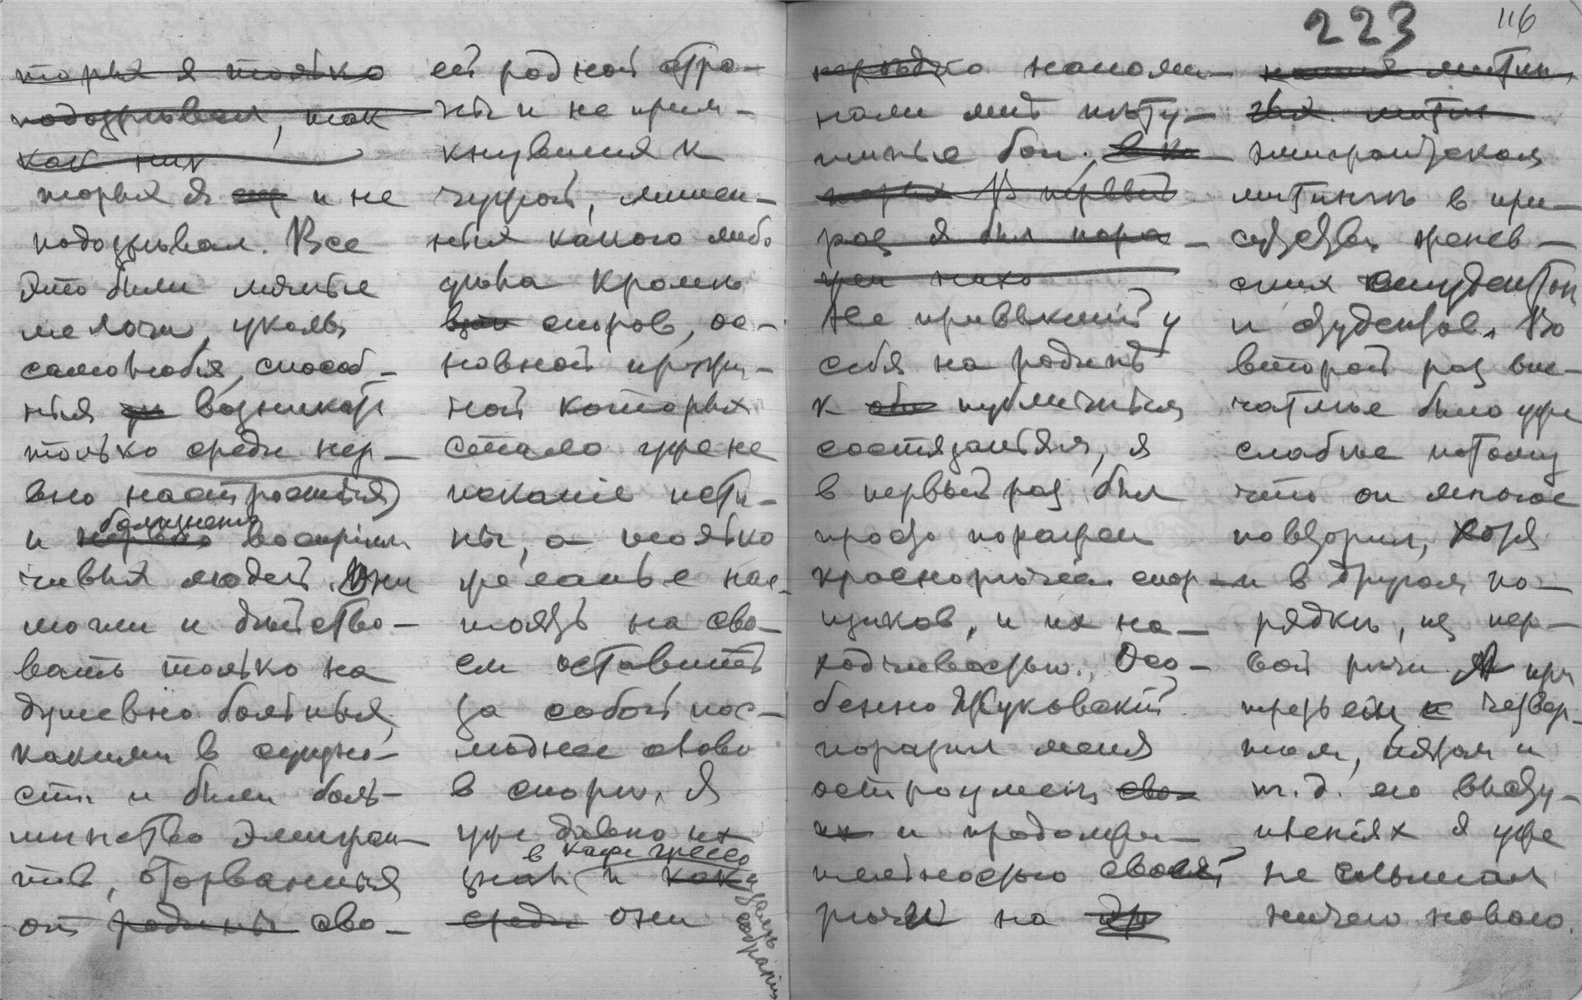 223
116
торыя я только
подозрѣвал, так
как них
торыя я ещ и не
подозрѣвал. Все
это были мелкие
мелочи, уколы
самолюбія, способ-
ныя возникать
только среди нер-
вно настроенных
болѣзненно
и нервно воспріим
чивых людей. Они
могли и действо-
вать только на
душевно больных,
какими в сущно-
сти и были боль-
шинство эмигран-
тов, оторванныя
от родины сво-
ей родной стра-
ны и не прим-
кнувшия к
чужой, лишен-
ныя какого либо
дѣла кромѣ
споров, ос-
новной причи-
ной которых
стало уже не
искание исти-
ны, а только
желанье нас-
тоять на сво-
ем оставить
за собой пос-
лѣднее слово
в спорѣ. Я
уже давно их
в кафе
знал и как
среди они
залах
собраний
напоми-
нали мнѣ пѣту-
шиные бои. в ко
торыя В первый
раз я был пора-
жен
Не привыкший у
себя на родинѣ
к публичныя
состязаниям, я
в первый раз был
просто поражен
краснорѣчием спор-
щиков, и их на-
ходчивостью. Осо-
бенно Жуковский
поразил меня
остроумием сво
их и продолжи-
тельностью своей
рѣчи на др
митин
гѣ. митин
эмигрантском
митингѣ в при-
сутствии женев-
ских студенток
и студентов. Во
второй раз впе-
чатлѣнье было уже
слабее потому
что он многое
повторил, хотя
и в другом по-
рядкѣ, из пер-
вой рѣчи. А при
третьем и четвер-
том, пятом и
т.д. его высту-
плениях я уже
не слышал
ничего нового.